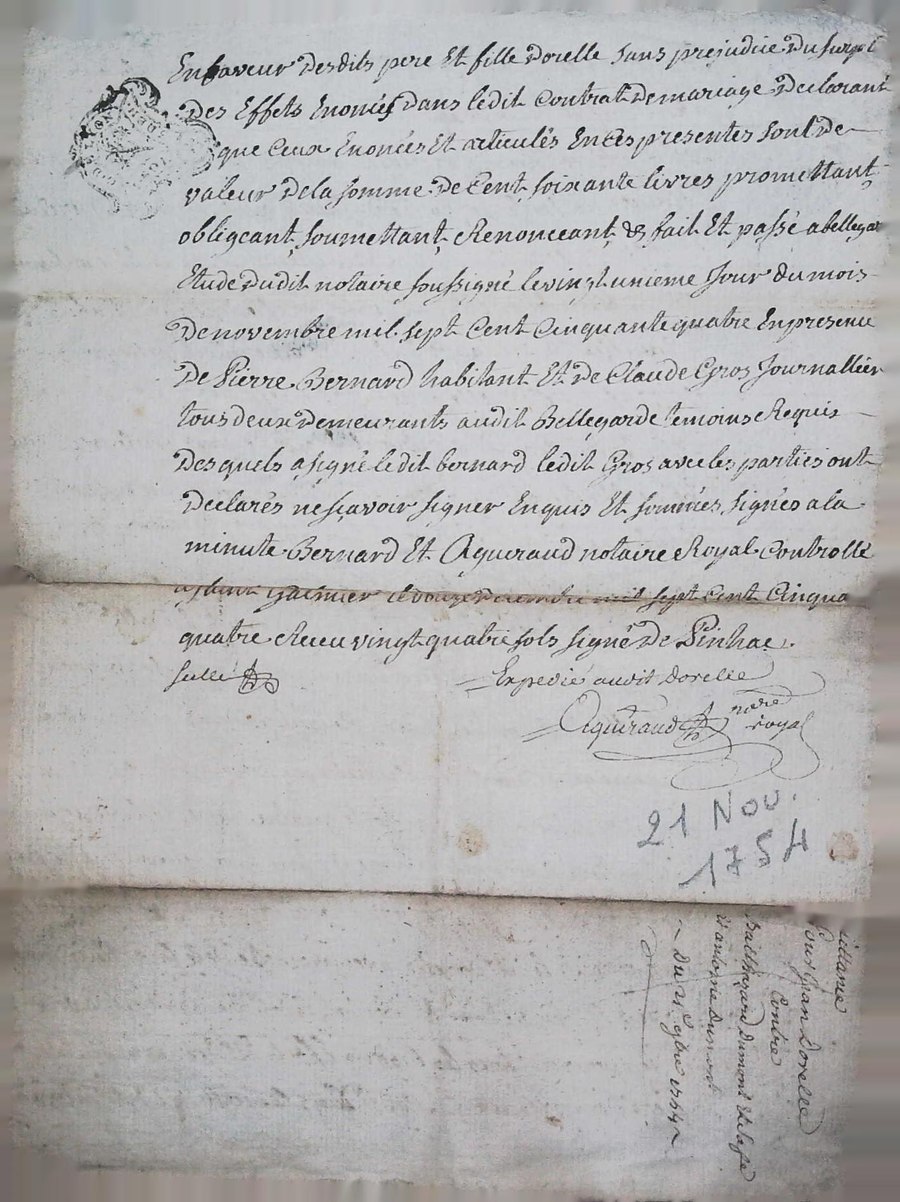 Enfaveur Desdits pere Et fille Dorelle Sans prejudice Du surpl
Des Effets Enoncés Dans ledit Contrat Demariage Declarant
que Ceux Enoncés Et articulés En Ces presentes Sont De
valeur Dela Somme De Cent soixante livres promettant
obligeant, soumettant, Renonceant, &c fait Et passé a bellegar
Etude Dudit notaire soussigné levingt unieme Jour du mois
De novembre mil sept Cent Cinquante quatre En presence
De Pierre Bernard habitant Et De Claude Gros Journallier
tous deux Demeurants audit Bellegarde temoins Requis
Desquels a signé ledit bernard ledit Gros avec les parties ont
Declarés nesçavoir signer Enquis Et sommés, signés a la
minute Bernard Et Aguiraud notaire Royal Controllé
a saint Galmier le douze Decembre mil sept Cent Cinqua
quatre Receu vingt quatre sols signé De Pinhac
Expedié audit Dorelle
Aguiraud nore
royal
21 Nov.
1754
Quittance
Pour Jean Dorelle
Contre
Balthazard Dumont
Du 21 9bre 1754